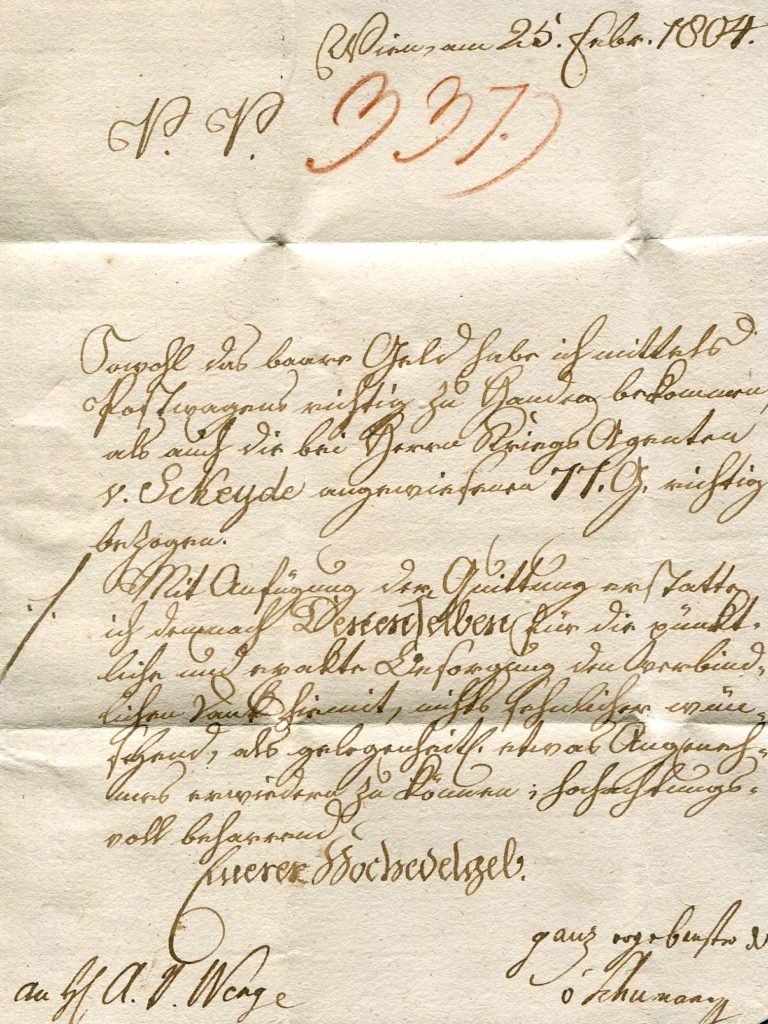 Wien, am 25. Febr. 1804.
P. P.
337.)
Sowohl das baare Geld habe ich mittels
Postwagens richtig zu Handen bekommen,
als auch die bei Herrn Kriegs Agenten
v. Scheyde angewiesenen 77. G. richtig
bezogen.
Mit Anfügung der Quittung erstatte
ich demnach Denenselben für die pünkt-
liche und exakte Besorgung den verbind-
lichen Dank hiemit, nichts sehnlicher wün-
schend, als gelegenheitl. etwas Angeneh-
mes erwiedern zu können; hochachtungs-
voll beharrend
Euerer Hochedelgeb.
ganz ergebenster
an H A. V. Wenge